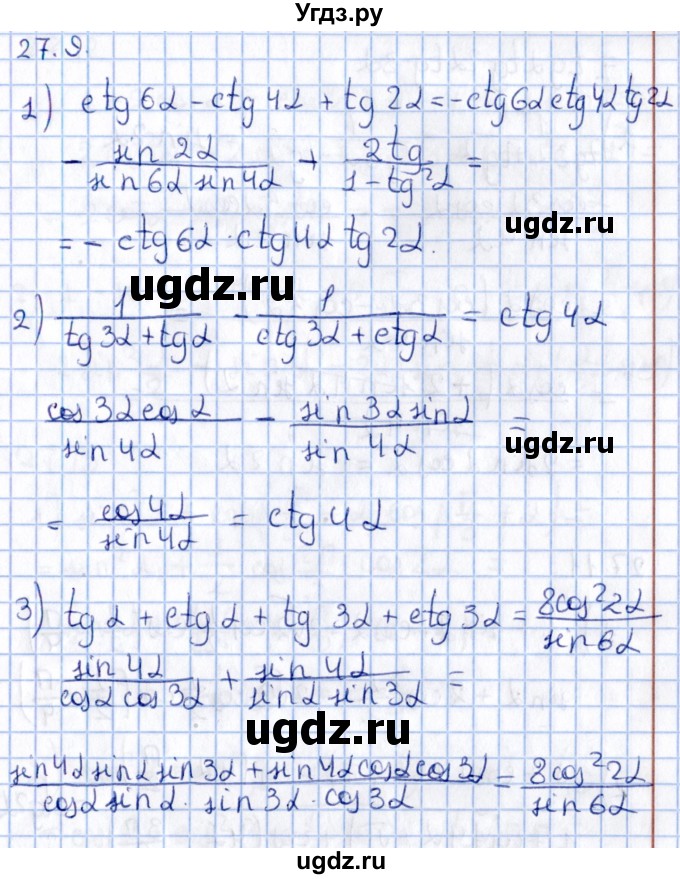 Угдз.ру
27.9.
1) ctg 6α - ctg 4α + tg 2α = -ctg 6α ctg 4α tg 2α
- sin 2α / sin 6α sin 4α + 2tg / 1 - tg²α =
ugdz.ru
= - ctg 6α · ctg 4α tg 2α.
ugdz.ru
2) 1 / tg 3α + tg α - 1 / ctg 3α + ctg α = ctg 4α
cos 3α cos α / sin 4α - sin 3α sin α / sin 4α =
= cos 4α / sin 4α = ctg 4α
3) tg α + ctg α + tg 3α + ctg 3α = 8cos²2α / sin 6α
sin 4α / cos α cos 3α + sin 4α / sin α sin 3α =
ugdz.ru
ugdz.ru
sin 4α sin α sin 3α + sin 4α cos α cos 3α / cos α sin α · sin 3α · cos 3α = 8cos²2α / sin 6α
ugdz.ru